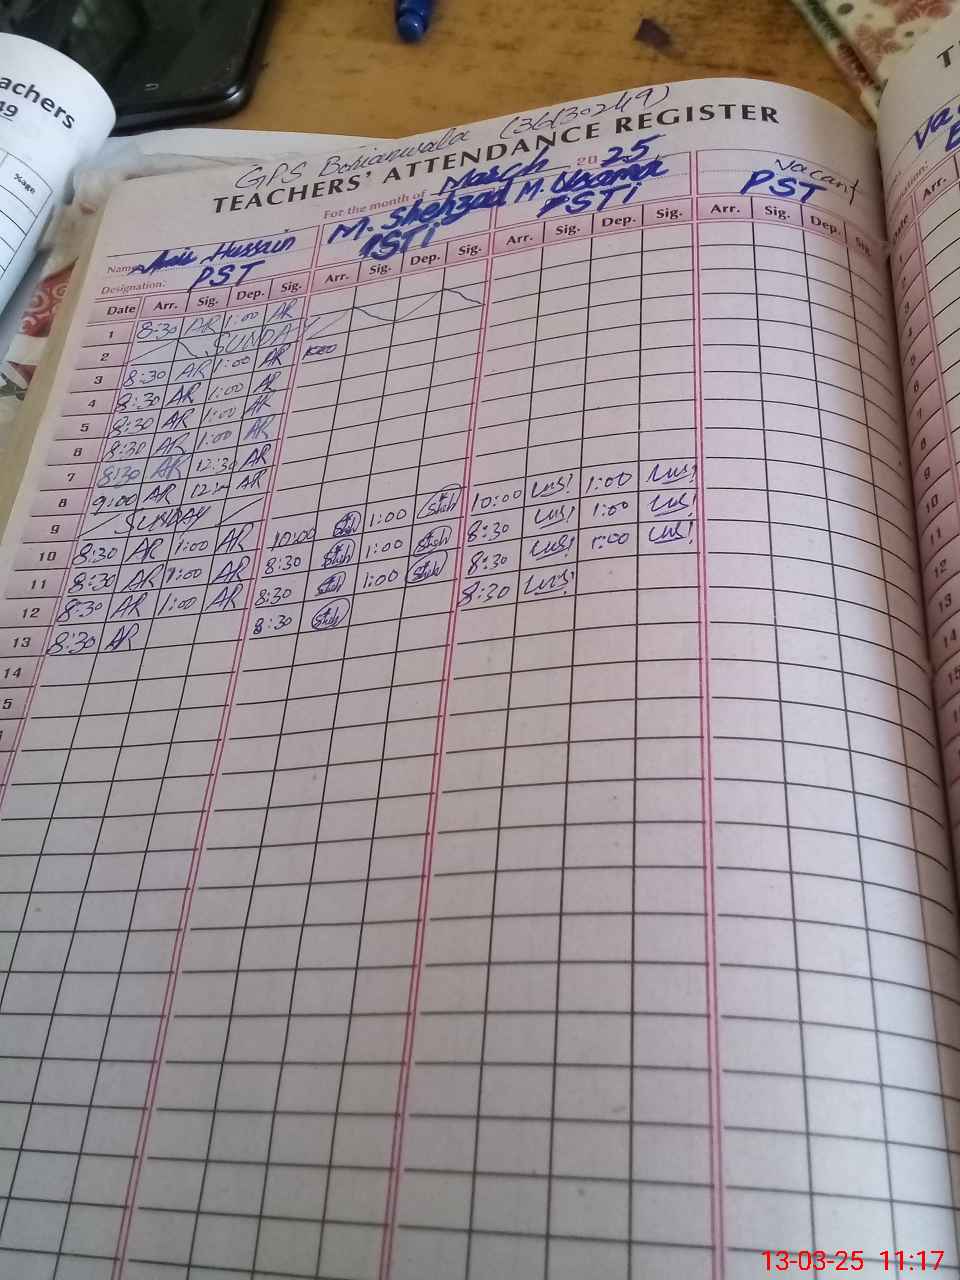 achers
49
Stage
GPS Bohianwala (36130249)
TEACHERS' ATTENDANCE REGISTER
For the month of March 2025
Name Hussain M. Shehzad M. Usama Vacant
Designation: PST PSTi PSTi PST
Date Arr. Sig. Dep. Sig. Arr. Sig. Dep. Sig. Arr. Sig. Dep. Sig. Arr. Sig. Dep. Sig.
1 8:30 AR 1:00 AR
2 SUNDAY
3 8:30 AR 1:00 AR
4 8:30 AR 1:00 AR
5 8:30 AR 1:00 AR
6 8:30 AR 1:00 AR
7 8:30 AR 12:30 AR
8 9:00 AR AR
9 SUNDAY
10 8:30 AR 1:00 AR 10:00 1:00 10:00 1:00
11 8:30 AR 1:00 AR 8:30 1:00 8:30 1:00
12 8:30 AR 1:00 AR 8:30 1:00 8:30 1:00
13 8:30 AR 8:30 8:30
14
5
Arr.
Date
1
2
3
4
5
6
7
8
9
10
11
12
13
14
15
13-03-25 11:17